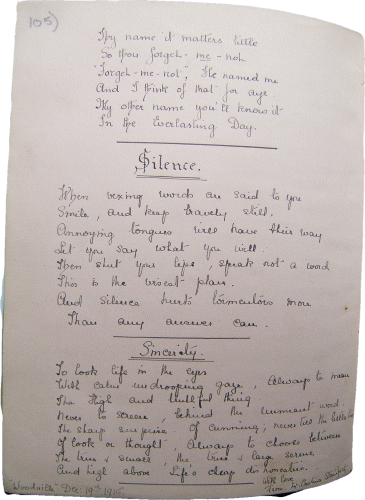 105)
My name it matters little
So thou forget-me-not
"Forget-me-not", He named me
And I think of that for aye
My other name you'll know it
In the Everlasting Day.
Silence.
When vexing words are said to you
Smile, and keep bravely still.
Annoying tongues will have their way
Let you say what you will.
Then shut your lips, speak not a word
This is the wisest plan.
And Silence hurts tormentors more
Than any answer can.
Sincerity.
To look life in the eyes
With calm undrooping gaze, Always to mean
The High and truthful thing
Never to screen, behind the unmeant word.
The sharp surprise, Of Cunning; never tell the little lie
Of look or thought, Always to choose between
The true & small, the true & large serene
And high above Life's cheap dishonesties.
With love
from
"Woodville" Dec. 19th 1915